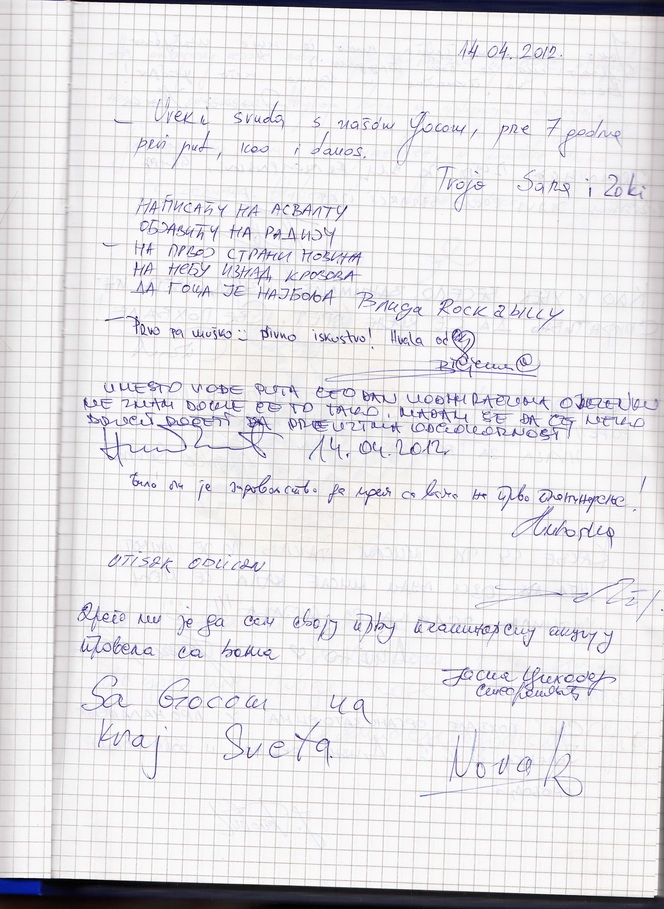 14.04.2012.
– Uvek i svuda s našom Gocom, pre 7 godina
prvi put, kao i danas.
Tvoja Sanja i Zoki
НАПИСАЋУ НА АСВАЛТУ
ОБЈАВИЋУ НА РАДИЈУ
– НА ПРВОЈ СТРАНИ НОВИНА
НА НЕБУ ИЗНАД КРОВОВА
ДА ГОЦА ЈЕ НАЈБОЉА Влада Rockabilly
– Prvo pa muško :: Divno iskustvo! Hvala od
UMESTO VODE PUTA CEO DAN
NE ZNAM DOKLE ĆE TO TAKO. NADAM SE DA ĆE NEKO
DRUGI POČETI DA PREUZIMA ODGOVORNOST
14.04.2012.
Било ми је задовољство да идем са вама на прво планинарење!
UTISAK ODLIČAN
Драго ми је да сам своју прву планинарску акцију
провела са вама
Јасна
Sa Gocom na
kraj Sveta.
Novak